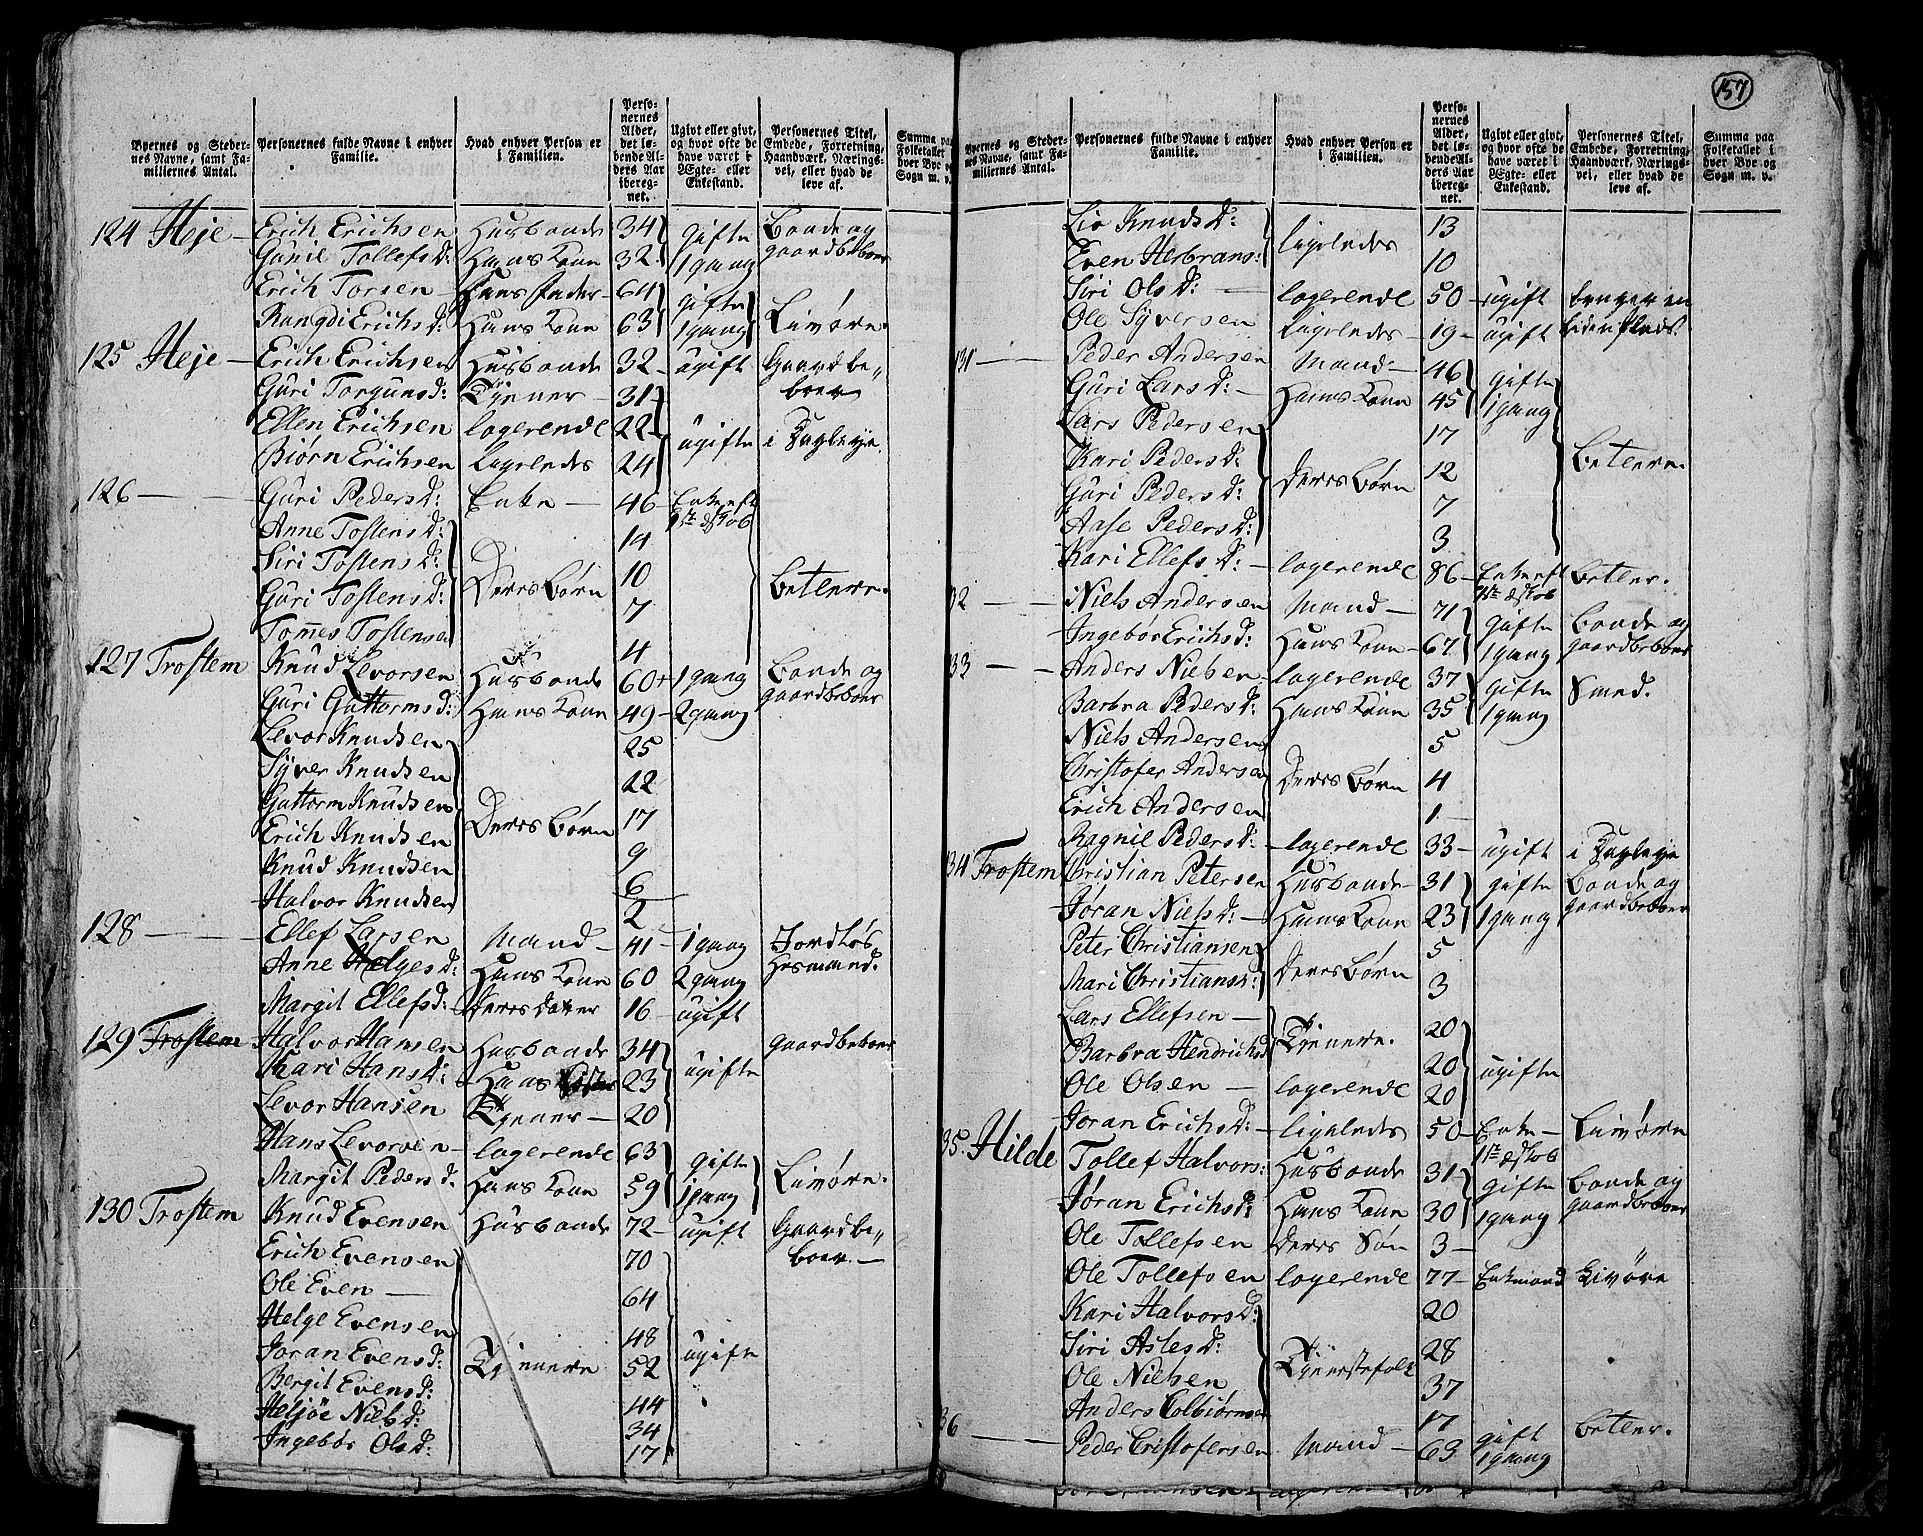 157
Byernes og Stedernes Navne, samt Familiernes Antal. Personernes fulde Navne i enhver Familie. Hvad enhver Person er i Familien. Personernes Alder, det løbende Alders Aar iberegnet. Ugivt eller givt, og hvor ofte de have været i Ægte- eller Enkestand. Personernes Titel, Embede, Forretning, Haandværk, Næringsvei, eller hvad de leve af. Summa paa Folketallet i hver Bye og Sogn m. v.
124 Heje — Erich Erichsen Husbonde 34 gifte 1 gang Bonde og gaardbeboer
Gunil Tollefsd: Hans Kone 32
Erich Torsen — Hans Fader — 64 gifte 1 gang Livøre.
Rangdi Erichsd: Hans Kone 63
125 Heje — Erich Erichsen Husbonde 32 — ugift Gaardbeboer
Guri Torgunsd: Tjener — 31
Ellen Erichsen logerende 22 ugifte i
Biørn Erichsen ligeledes 24
126 — — Guri Pedersd: Enke — 46 — Enke eft 1ste Ægtskb
Anne Tostensd: Deres Børn 14 betlere.
Siri Tostensd: 10
Guri Tostensd: 7
Tom̄es Tostensen 4
127 Trostem Knud Levorsen Husbonde 60 1 gang Bonde og gaardbeboer
Guri Guttormsd: Hans Kone 49 — 2 gang
Levor Knudsen Deres Børn 25
Syver Knudsen 22
Guttorm Knudsen 17
Erich Knudsen 9
Knud Knudsen 6
Halvor Knudsen 2
128 — — Ellef Larsen Mand — 41 — 1 gang Jordløs Husmand.
Anne Helgesd: Hans Kone 60 2 gang
Margit Ellefsd: Deres Dotter 16 — ugift
129 Trostem Halvor Hansen Husbonde 34 ugifte gaardbeboer
Kari Hansd: Hans Søster 23
Levor Hansen Tjener — 20
Hans Levorsen — logerende 63 gifte 1 gang Livøre.
Margit Pedersd: Hans Kone 59
130 Trostem Knud Evensen Husbonde 72 — ugift Gaardbeboer. —
Erich Evensen Tjenere 70 ugifte
Ole Even — 64
Helge Evensen 48
Joran Evensd: 52
Bergit Evensd: 44
Heljøe Nielsd: 34
Ingebør Olsd: 17
Byernes og Stedernes Navne, samt Familiernes Antal. Personernes fulde Navne i enhver Familie. Hvad enhver Person er i Familien. Personernes Alder, det løbende Alders Aar iberegnet. Ugivt eller givt, og hvor ofte de have været i Ægte- eller Enkestand. Personernes Titel, Embede, Forretning, Haandværk, Næringsvei, eller hvad de leve af. Summa paa Folketallet i hver Bye og Sogn m. v.
Liv Knudsd: ligeledes 13
Even Herbrans: 10
Siri Olsd: — logerende 50 — ugift bruger en liden Plads.
Ole Syversen ligeledes 19 — ugift
131 — Peder Andersen Mand — 46 gifte 1 gang betlere.
Guri Larsd: — Hans Kone 45
Lars Pedersen Deres Børn 17
Kari Pedersd: 12
Guri Pedersd: 7
Aase Pedersd: 3
Kari Ellefsd: — logerende 86 — Enke eft 1ste Ægtskb betler.
32 — — Niels Andersen Mand — 71 gifte 1 gang Bonde og gaardbeboer
Ingebør Erichsd: Hans Kone — 67
33 — — Anders Nielsen logerende 37 gifte 1 gang Smed.
Barbra Pedersd: Hans Kone 35
Niels Andersen Deres Børn 5
Christofer Andersen 4
Erich Andersen 1
Ragnil Pedersd: — logerende 33 — ugift i
34 Trostem Christian Petersen Husbonde — 31 gifte 1 gang Bonde og gaardbeboer
Joran Nielsd: — Hans Kone 23
Peter Christiansen Deres Børn 5
Mari Christiansd: 3
Lars Ellefsen — Tjenere. 20 ugifte
Barbra Hendrichsd 20
Ole Olsen — logerende 20
Joran Erichsd: — ligeledes 50 — Enke — 1ste Ægtskb Livøre
35. Hilde Tollef Halvors: Husbonde 31 gifte 1 gang Bonde og gaardbeboer
Joran Erichsd: Hans Kone 30
Ole Tollefsen Deres Søn 3 —
Ole Tollefsen logerende 77 — Enkemand Livøre
Kari Halvorsd: Tjenestefolk 20
Siri Aslesd: 28
Ole Nielsen 37
Anders Colbiørnsen 17
36 — — Peder Cristofersen Mand — 63 gift 1 gang betler.